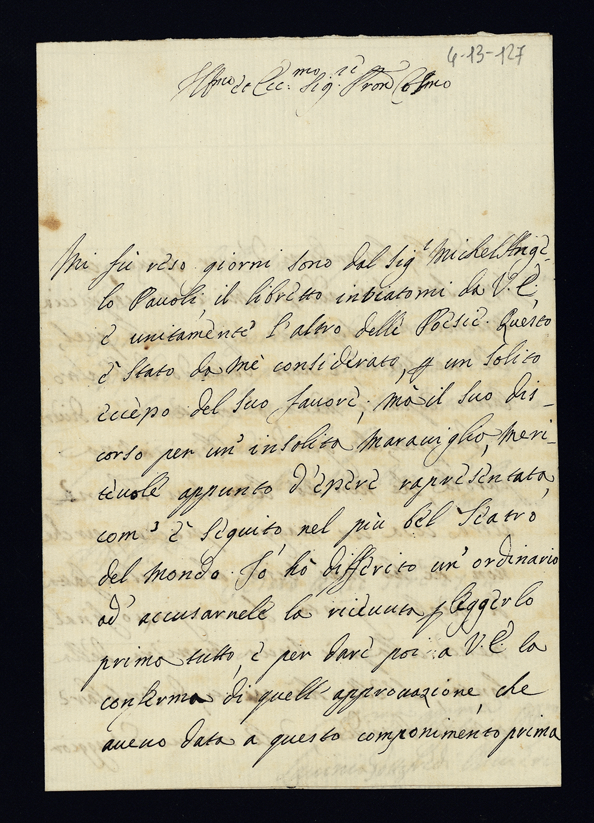 4-13-127
Illmo et Ecc.mo Sig.re Pron Colmo
Mi fù reso giorni sono dal Sig.r Michel'Ange-
lo Pavoli, il libretto inviatomi da V.E.
è unitamente l'altro delle Poesie. Questo
è stato da mè considerato, p un solito
eccèsso del suo favore; mà il suo dis-
corso per un'insolita maraviglia, meri-
tevole appunto d'essere rapresentata,
com'è seguito, nel più bel Teatro
del Mondo. Io hò differito un'ordinario
ad'accusarnele la ricevuta p leggerlo
prima tutto, è per dare poi a V.E. la
conferma di quell'approvazione, che
avevo data a questo componimento prima